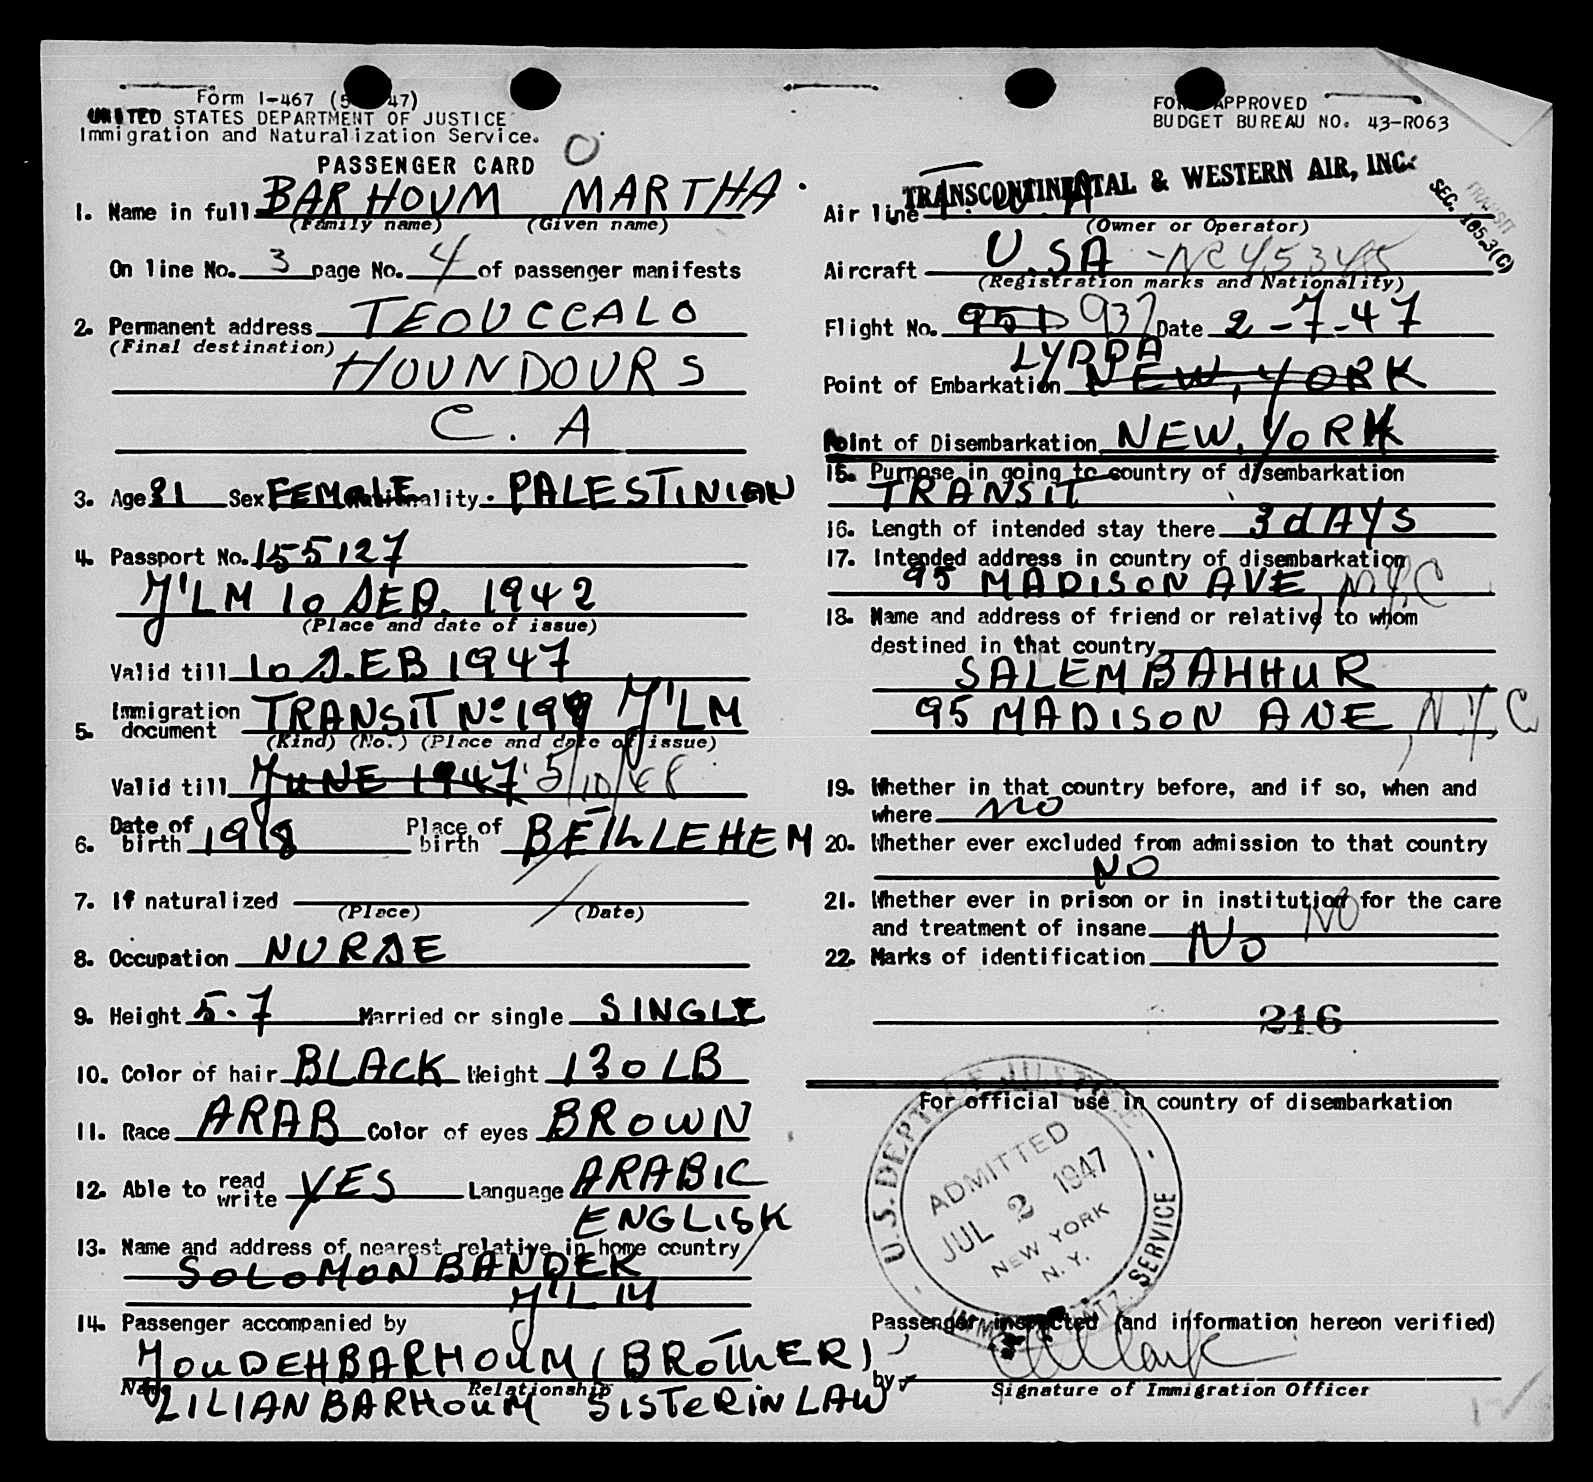 Form I-467 (5 47)
UNITED STATES DEPARTMENT OF JUSTICE
Immigration and Naturalization Service.
PASSENGER CARD
0
1. Name in full BARHOUM MARTHA.
(Family name) (Given name)
On line No. 3 page No. 4 of passenger manifests
2. Permanent address TEOUCCALO
(Final destination)
HOUNDOURS
C. A
3. Age 31 Sex FEMALE Nationality. PALESTINIAN
4. Passport No. 155127
J'LM 10 SEP. 1942
(Place and date of issue)
Valid till 10 SEB 1947
5. Immigration document TRANSIT No 199 J'LM
(Kind) (No.) (Place and date of issue)
Valid till JUNE 1947 5/10/48
6. Date of birth 1918 Place of birth BETHLEHEM
7. If naturalized
(Place) (Date)
8. Occupation NURSE
9. Height 5.7 Married or single SINGLE
10. Color of hair BLACK Weight 130 LB
11. Race ARAB Color of eyes BROWN
12. Able to read write YES Language ARABIC
ENGLISH
13. Name and address of nearest relative in home country
SOLOMON BANDEK
J'LM
14. Passenger accompanied by
YOUDEH BARHOUM (BROTHER)
Name Relationship
LILIAN BARHOUM SISTER IN LAW
FORM APPROVED
BUDGET BUREAU NO. 43-R063
TRANSCONTINENTAL & WESTERN AIR, INC.
TRANSIT
SEC. 105.3(C)
Air line T.W.A
(Owner or Operator)
Aircraft U.SA - NC 45345
(Registration marks and Nationality)
Flight No. 951 937 Date 2-7-47
LYDDA
Point of Embarkation NEW, YORK
Point of Disembarkation NEW, YORK
15. Purpose in going to country of disembarkation
TRANSIT
16. Length of intended stay there 3 dAYS
17. Intended address in country of disembarkation
95 MADISON AVE, NYC
18. Name and address of friend or relative to whom
destined in that country
SALEM BAHHUR
95 MADISON AVE, N.Y.C
19. Whether in that country before, and if so, when and
where NO
20. Whether ever excluded from admission to that country
NO
21. Whether ever in prison or in institution for the care
NO
and treatment of insane NO
22. Marks of identification
216
For official use in country of disembarkation
U.S. DEPT. OF JUSTICE
ADMITTED
JUL 2 1947
NEW YORK
N.Y.
IMM. & NATZ. SERVICE
Passenger inspected (and information hereon verified)
by Clark
Signature of Immigration Officer